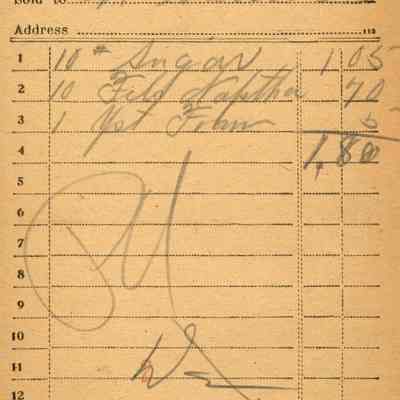 Sold to
Address
1 10# Sugar 1 05
2 10 Fels Naptha 70
3 1 5
4 1,80
5
6
7
8
9
10
11
12